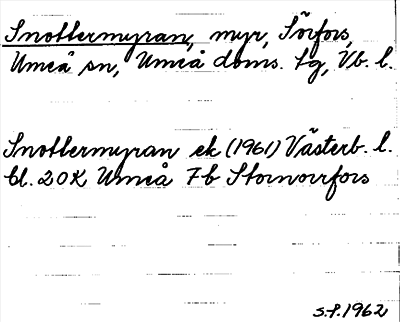 Snottermyran, myr, Sörfors,
Umeå sn, Umeå doms. tg, Vb. l.
Snottermyran ek (1961) Västerb. l.
bl. 20K Umeå 7b Stornorrfors
s.f.1962